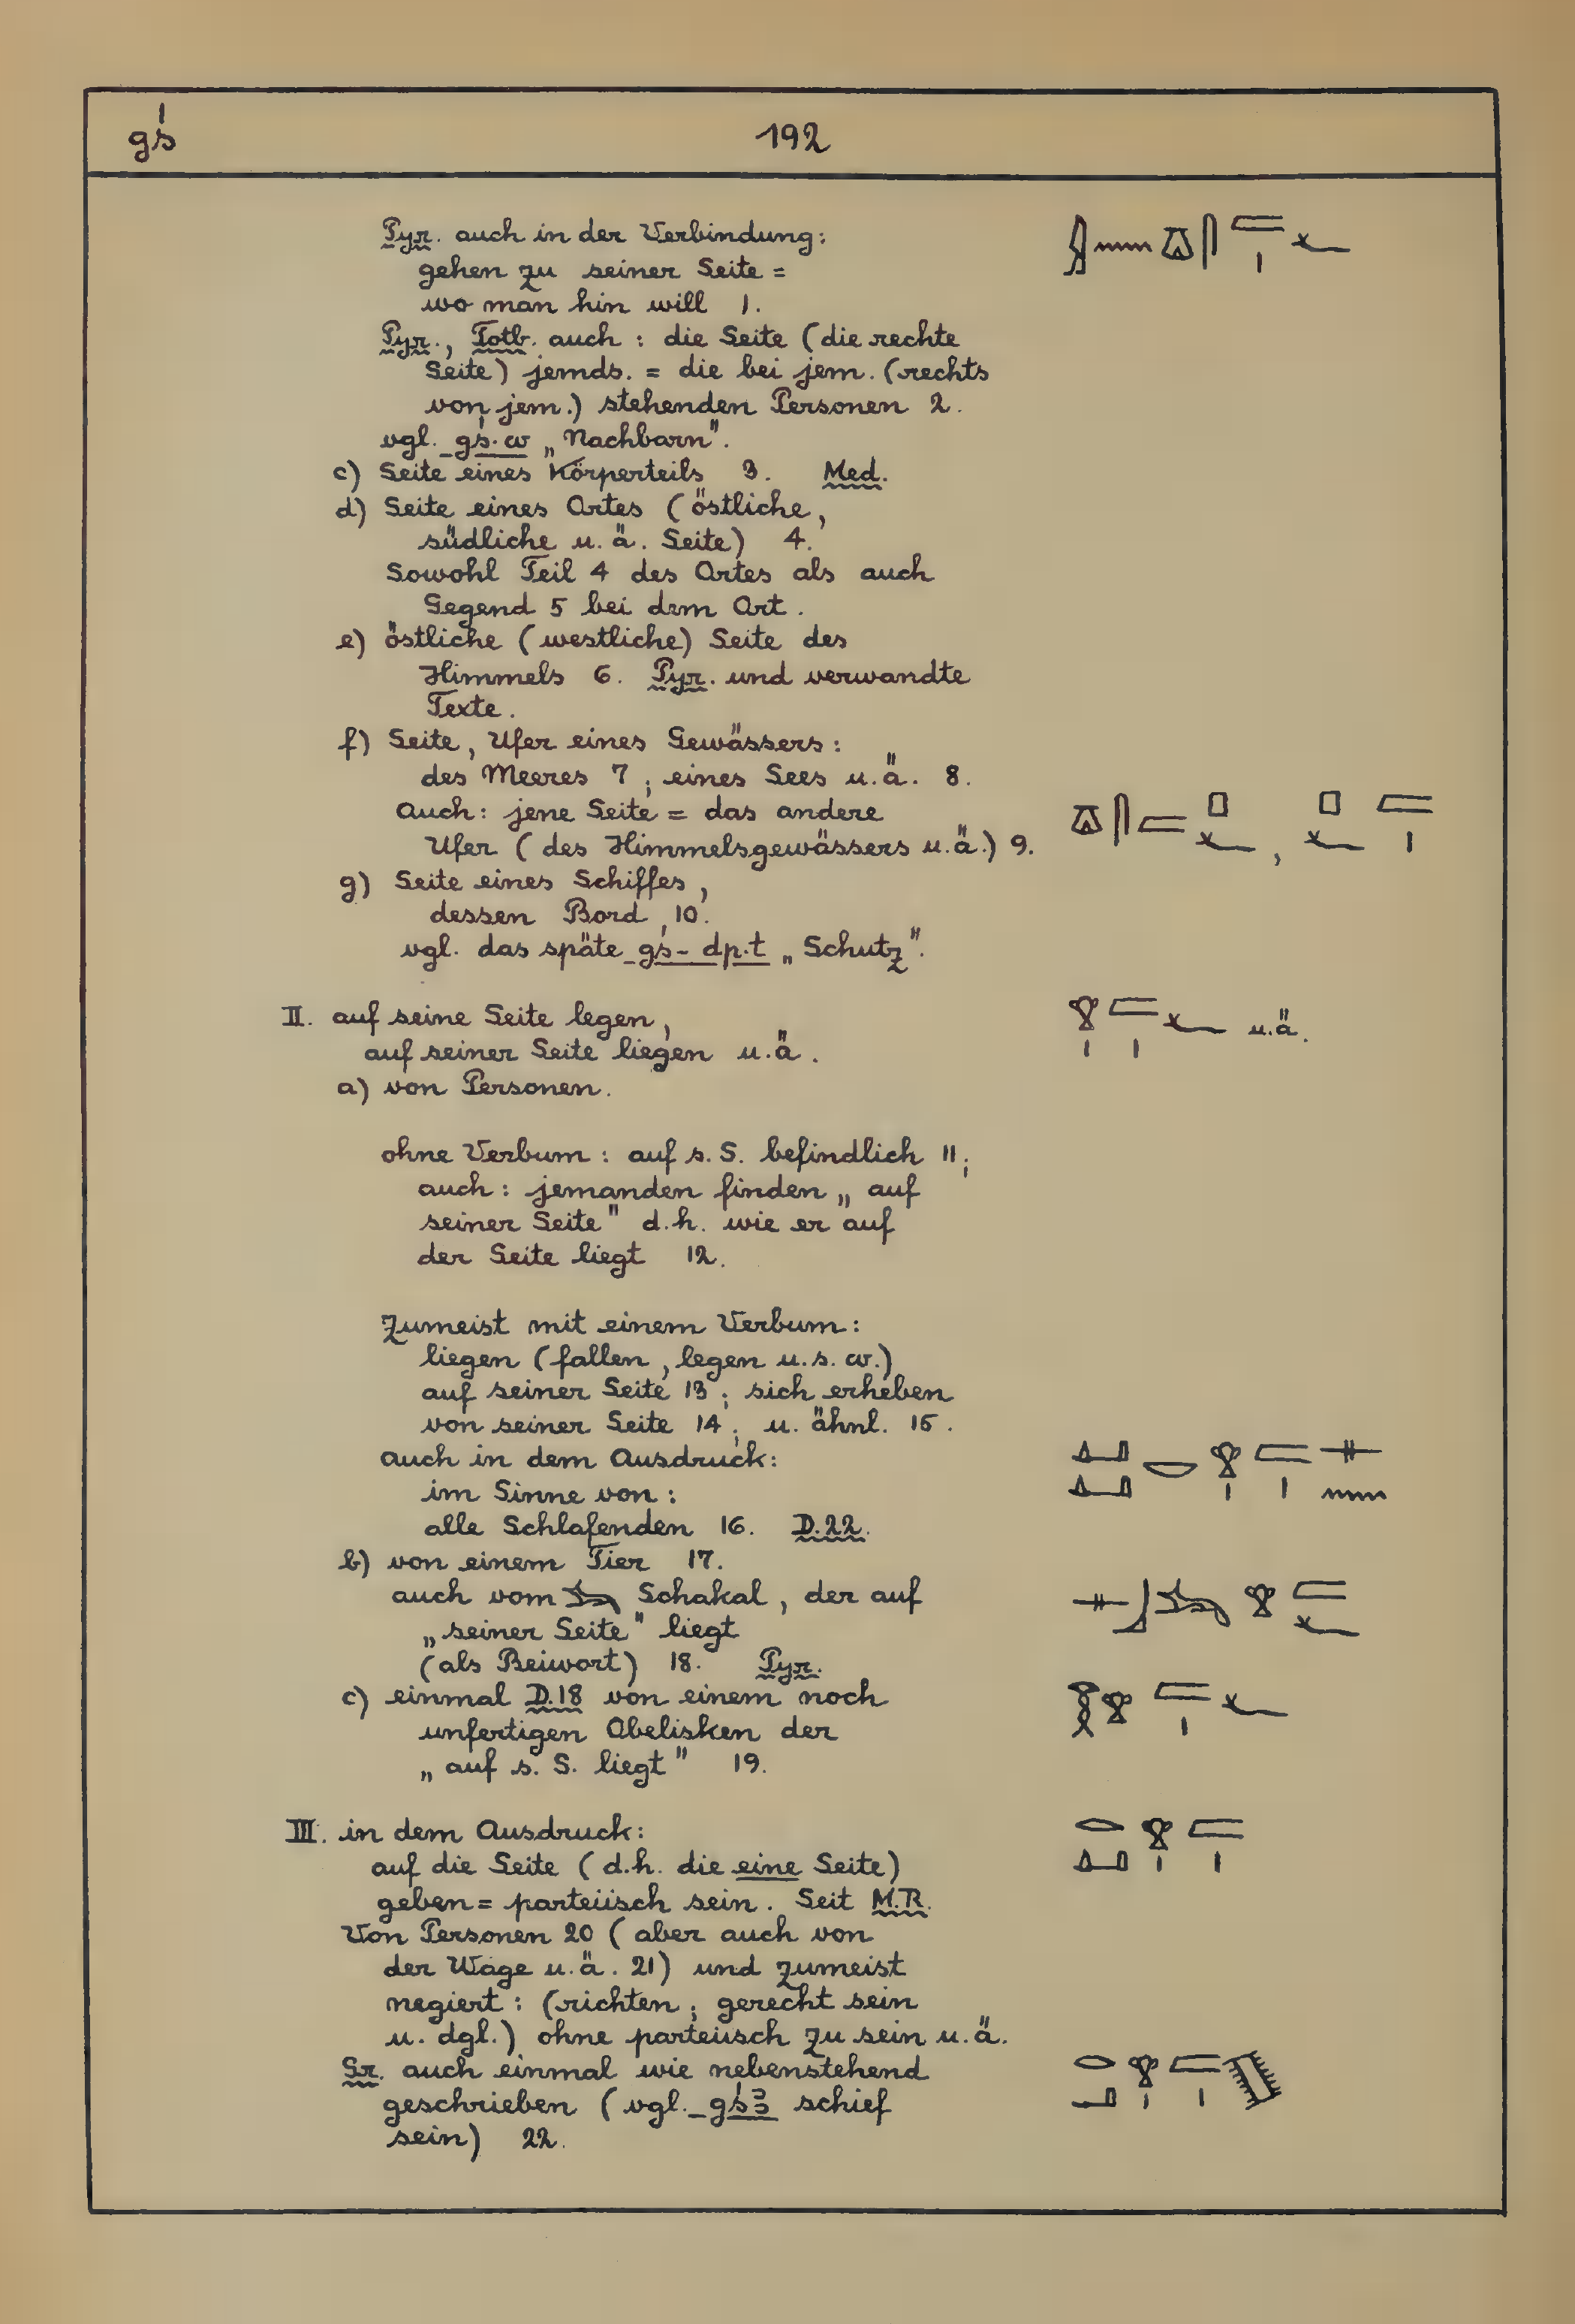 gś
192
Pyr. auch in der Verbindung:
gehen zu seiner Seite =
wo man hin will 1.
Pyr., Totb. auch : die Seite (die rechte
Seite) jemds. = die bei jem. (rechts
von jem.) stehenden Personen 2.
vgl. gś.w „Nachbarn".
c) Seite eines Körperteils 3. Med.
d) Seite eines Ortes (östliche,
südliche u. ä. Seite) 4.
Sowohl Teil 4 des Ortes als auch
Gegend 5 bei dem Ort.
e) östliche (westliche) Seite des
Himmels 6. Pyr. und verwandte
Texte.
f) Seite, Ufer eines Gewässers:
des Meeres 7; eines Sees u.ä. 8.
Auch: jene Seite = das andere
Ufer (des Himmelsgewässers u.ä.) 9.
g) Seite eines Schiffes,
dessen Bord, 10.
vgl. das späte gś-dp.t „Schutz".
II. auf seine Seite legen, u.ä.
auf seiner Seite liegen u.ä.
a) von Personen.
ohne Verbum : auf s. S. befindlich 11;
auch : jemanden finden „auf
seiner Seite" d.h. wie er auf
der Seite liegt 12.
Zumeist mit einem Verbum:
liegen (fallen, legen u.s.w.)
auf seiner Seite 13; sich erheben
von seiner Seite 14; u. ähnl. 15.
auch in dem Ausdruck:
im Sinne von :
alle Schlafenden 16. D.22.
b) von einem Tier 17.
auch vom Schakal, der auf
„seiner Seite" liegt
(als Beiwort) 18. Pyr.
c) einmal D.18 von einem noch
unfertigen Obelisken der
„auf s. S. liegt" 19.
III. in dem Ausdruck:
auf die Seite (d.h. die eine Seite)
geben = parteiisch sein. Seit M.R.
Von Personen 20 (aber auch von
der Wage u.ä. 21) und zumeist
negiert : (richten; gerecht sein
u. dgl.) ohne parteiisch zu sein u.ä.
Gr. auch einmal wie nebenstehend
geschrieben (vgl. gśꜣ schief
sein) 22.